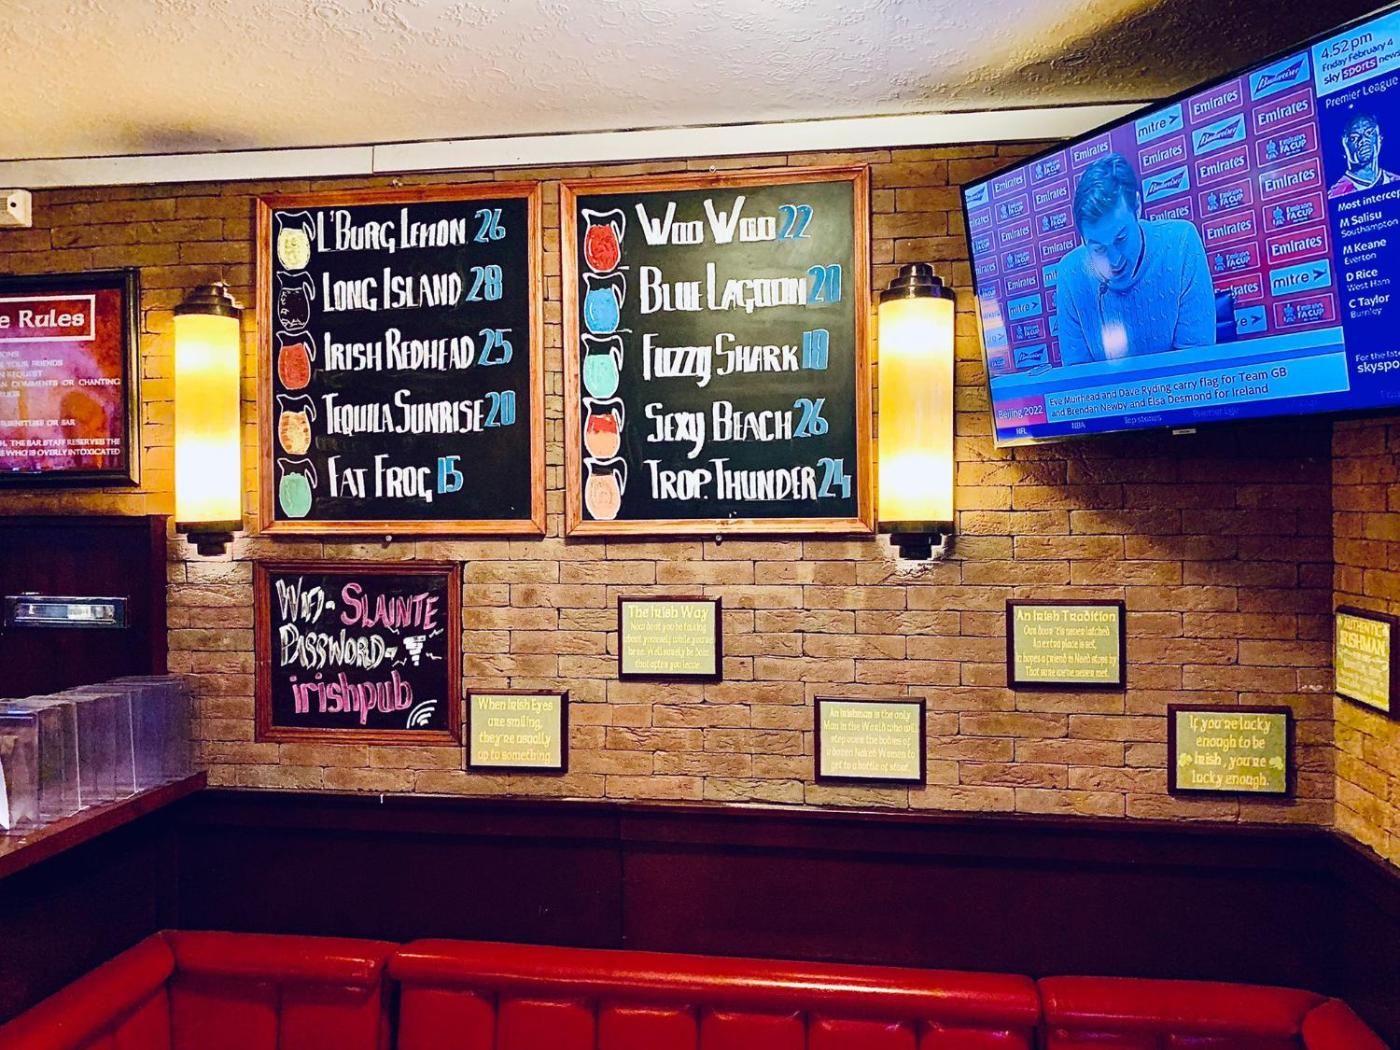 e Rules
L'Burg Lemon 26
Long Island 28
Irish Redhead 25
Tequila Sunrise 20
Fat Frog 15
Woo Woo 22
Blue Lagoon 20
Fuzzy Shark 18
Sexy Beach 26
Trop. Thunder 24
WiFi- SLAINTE
Password-
irishpub
The Irish Way
Now don't you be talking
about yourself while you're
here. We'll surely be doin
that after you leave.
When Irish Eyes
are smiling,
they're usually
up to something.
An Irishman is the only
Man in the World who will
step over the bodies of
a dozen Naked Women to
get to a bottle of stout.
An Irish Tradition
Our door 'tis never latched
An extra place is set,
In hopes a friend in Need stops by
That sure we've never met.
If you're lucky
enough to be
Irish, you're
lucky enough.
AUTHENTIC
IRISHMAN
4.52pm
Friday February 4
sky sports news
Premier League
Most intercep
M Salisu
Southampton
M Keane
Everton
D Rice
West Ham
C Taylor
Burnley
For the late
skyspo
Budweiser
Emirates
mitre
Emirates
FA CUP
Eve Muirhead and Dave Ryding carry flag for Team GB
Beijing 2022 and Brendan Newby and Elsa Desmond for Ireland
NFL NBA Top stories Premier Lge